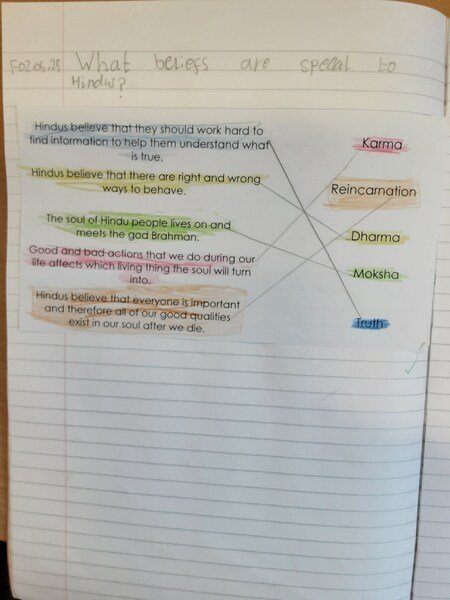 F02.05.25 What beliefs are special to
Hindus?
Hindus believe that they should work hard to
find information to help them understand what
is true.
Hindus believe that there are right and wrong
ways to behave.
The soul of Hindu people lives on and
meets the god Brahman.
Good and bad actions that we do during our
life affects which living thing the soul will turn
into.
Hindus believe that everyone is important
and therefore all of our good qualities
exist in our soul after we die.
Karma
Reincarnation
Dharma
Moksha
Truth